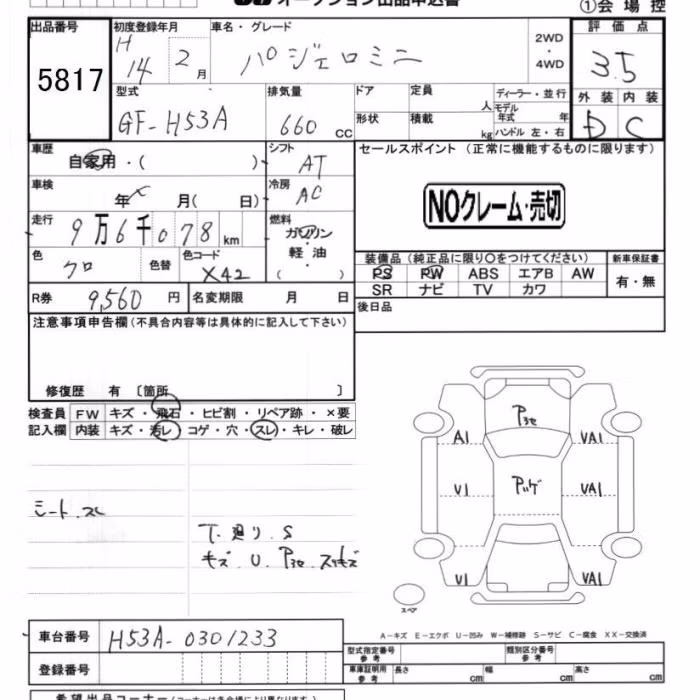 オークション出品申込書
①会場控
出品番号
5817
初度登録年月
H14 2月
車名・グレード
パジェロミニ
2WD
・
4WD
評価点
3.5
外装 内装
D C
型式
GF-H53A
排気量
660 CC
ドア
定員
人
形状
積載
kg
ディーラー・並行
モデル年式 年
ハンドル 左・右
車歴
自家用・( )
シフト
AT
セールスポイント (正常に機能するものに限ります)
NOクレーム・売切
車検
年 月( 日)
冷房
AC
走行
9万6千078km
燃料
ガソリン
軽油
( )
色
クロ
色替
色コード
X42
装備品(純正品に限り○をつけてください)
PS PW ABS エアB AW
SR ナビ TV カワ
新車保証書
有・無
R券 9,560円
名変期限 月 日
後日品
注意事項申告欄(不具合内容等は具体的に記入して下さい)
修復歴 有 〔箇所 〕
検査員記入欄
FW キズ・飛石・ヒビ割・リペア跡・×要
内装 キズ・汚レ コゲ・穴・スレ・キレ・破レ
A1 VA1
V1 VA1
V1 VA1
スペア
シート.スレ
T.廻り.S
キズ.U.
A-キズ E-エクボ U-凹み W-補修跡 S-サビ C-腐食 XX-交換済
車台番号
H53A-0301233
登録番号
型式指定番号
参考
類別区分番号
参考
車庫証明用
参考
長さ cm 幅 cm 高さ cm
希望出品コーナー